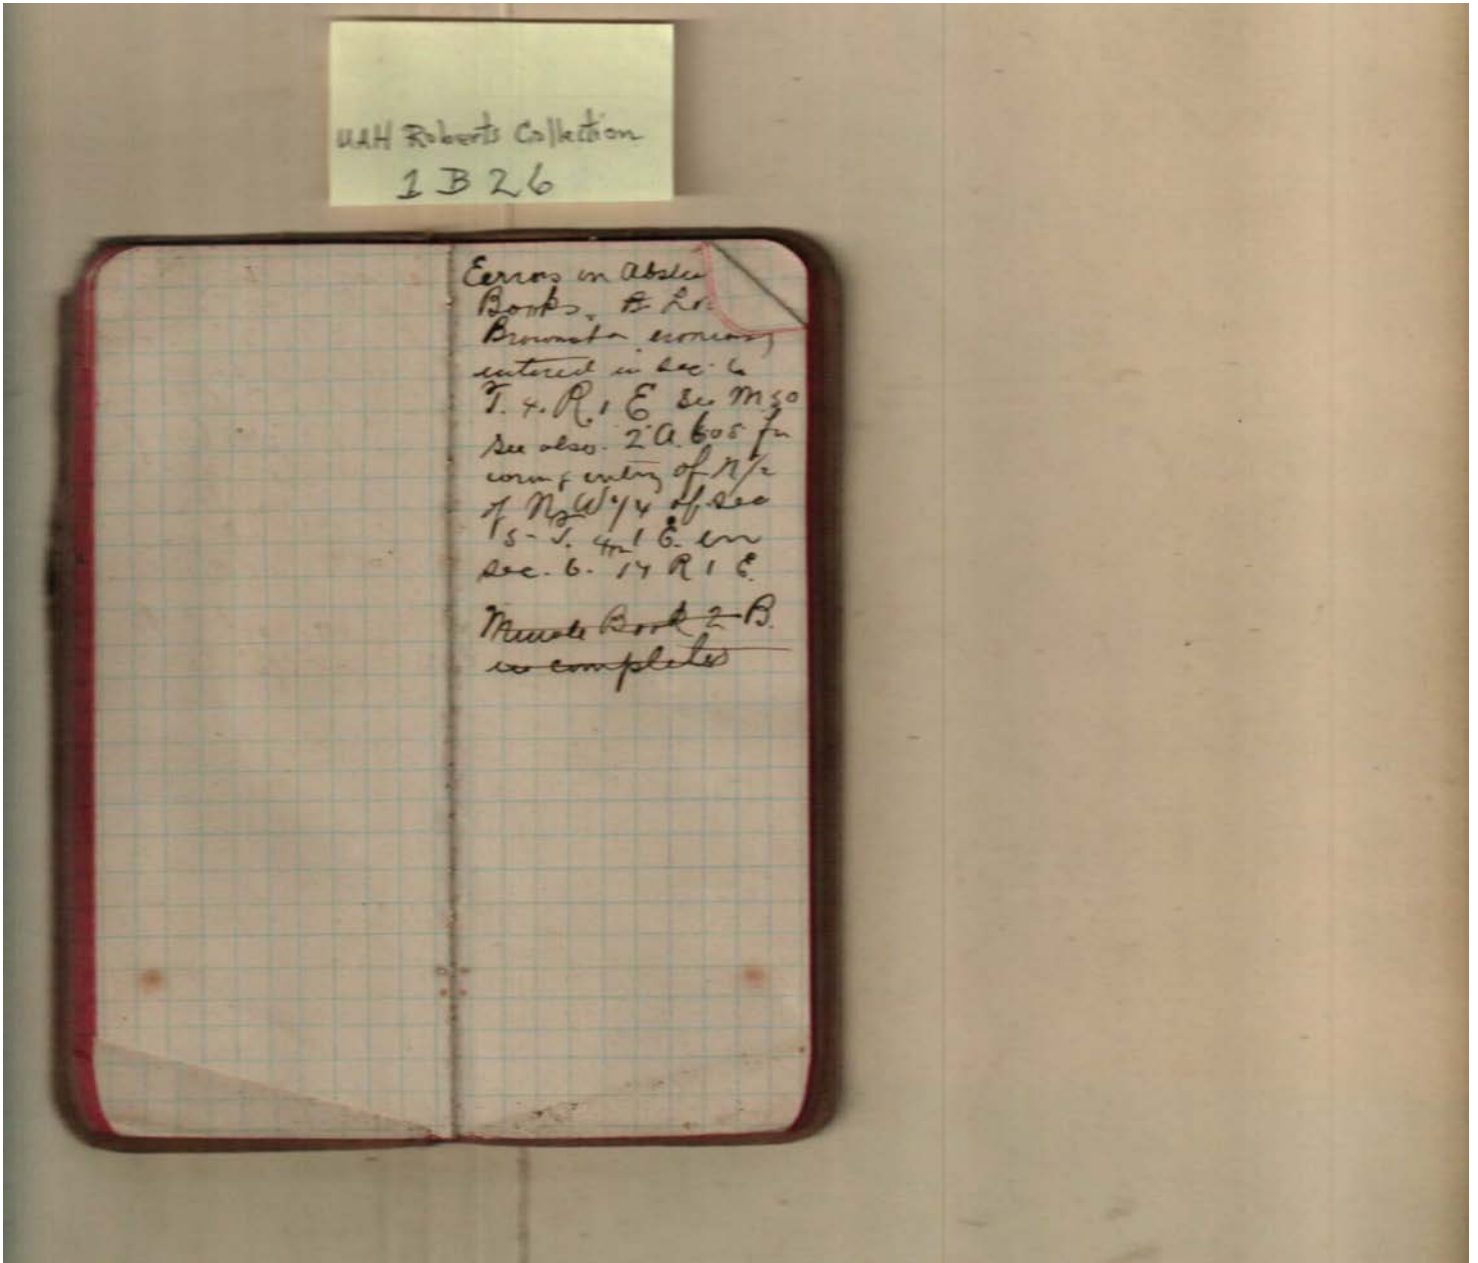 UAH Roberts Collection
1 B 26
Eerrors in Abstra
Books.
entered in Sec. 6
T. 4. R. 1 E See M 50
See also. 2 A. 605 for
entry of N/2
of N W 1/4 of Sec
5 - T. 4 1 E. in
Sec. 6. 14 R 1 E.
Minute Book 2 B.
in complete